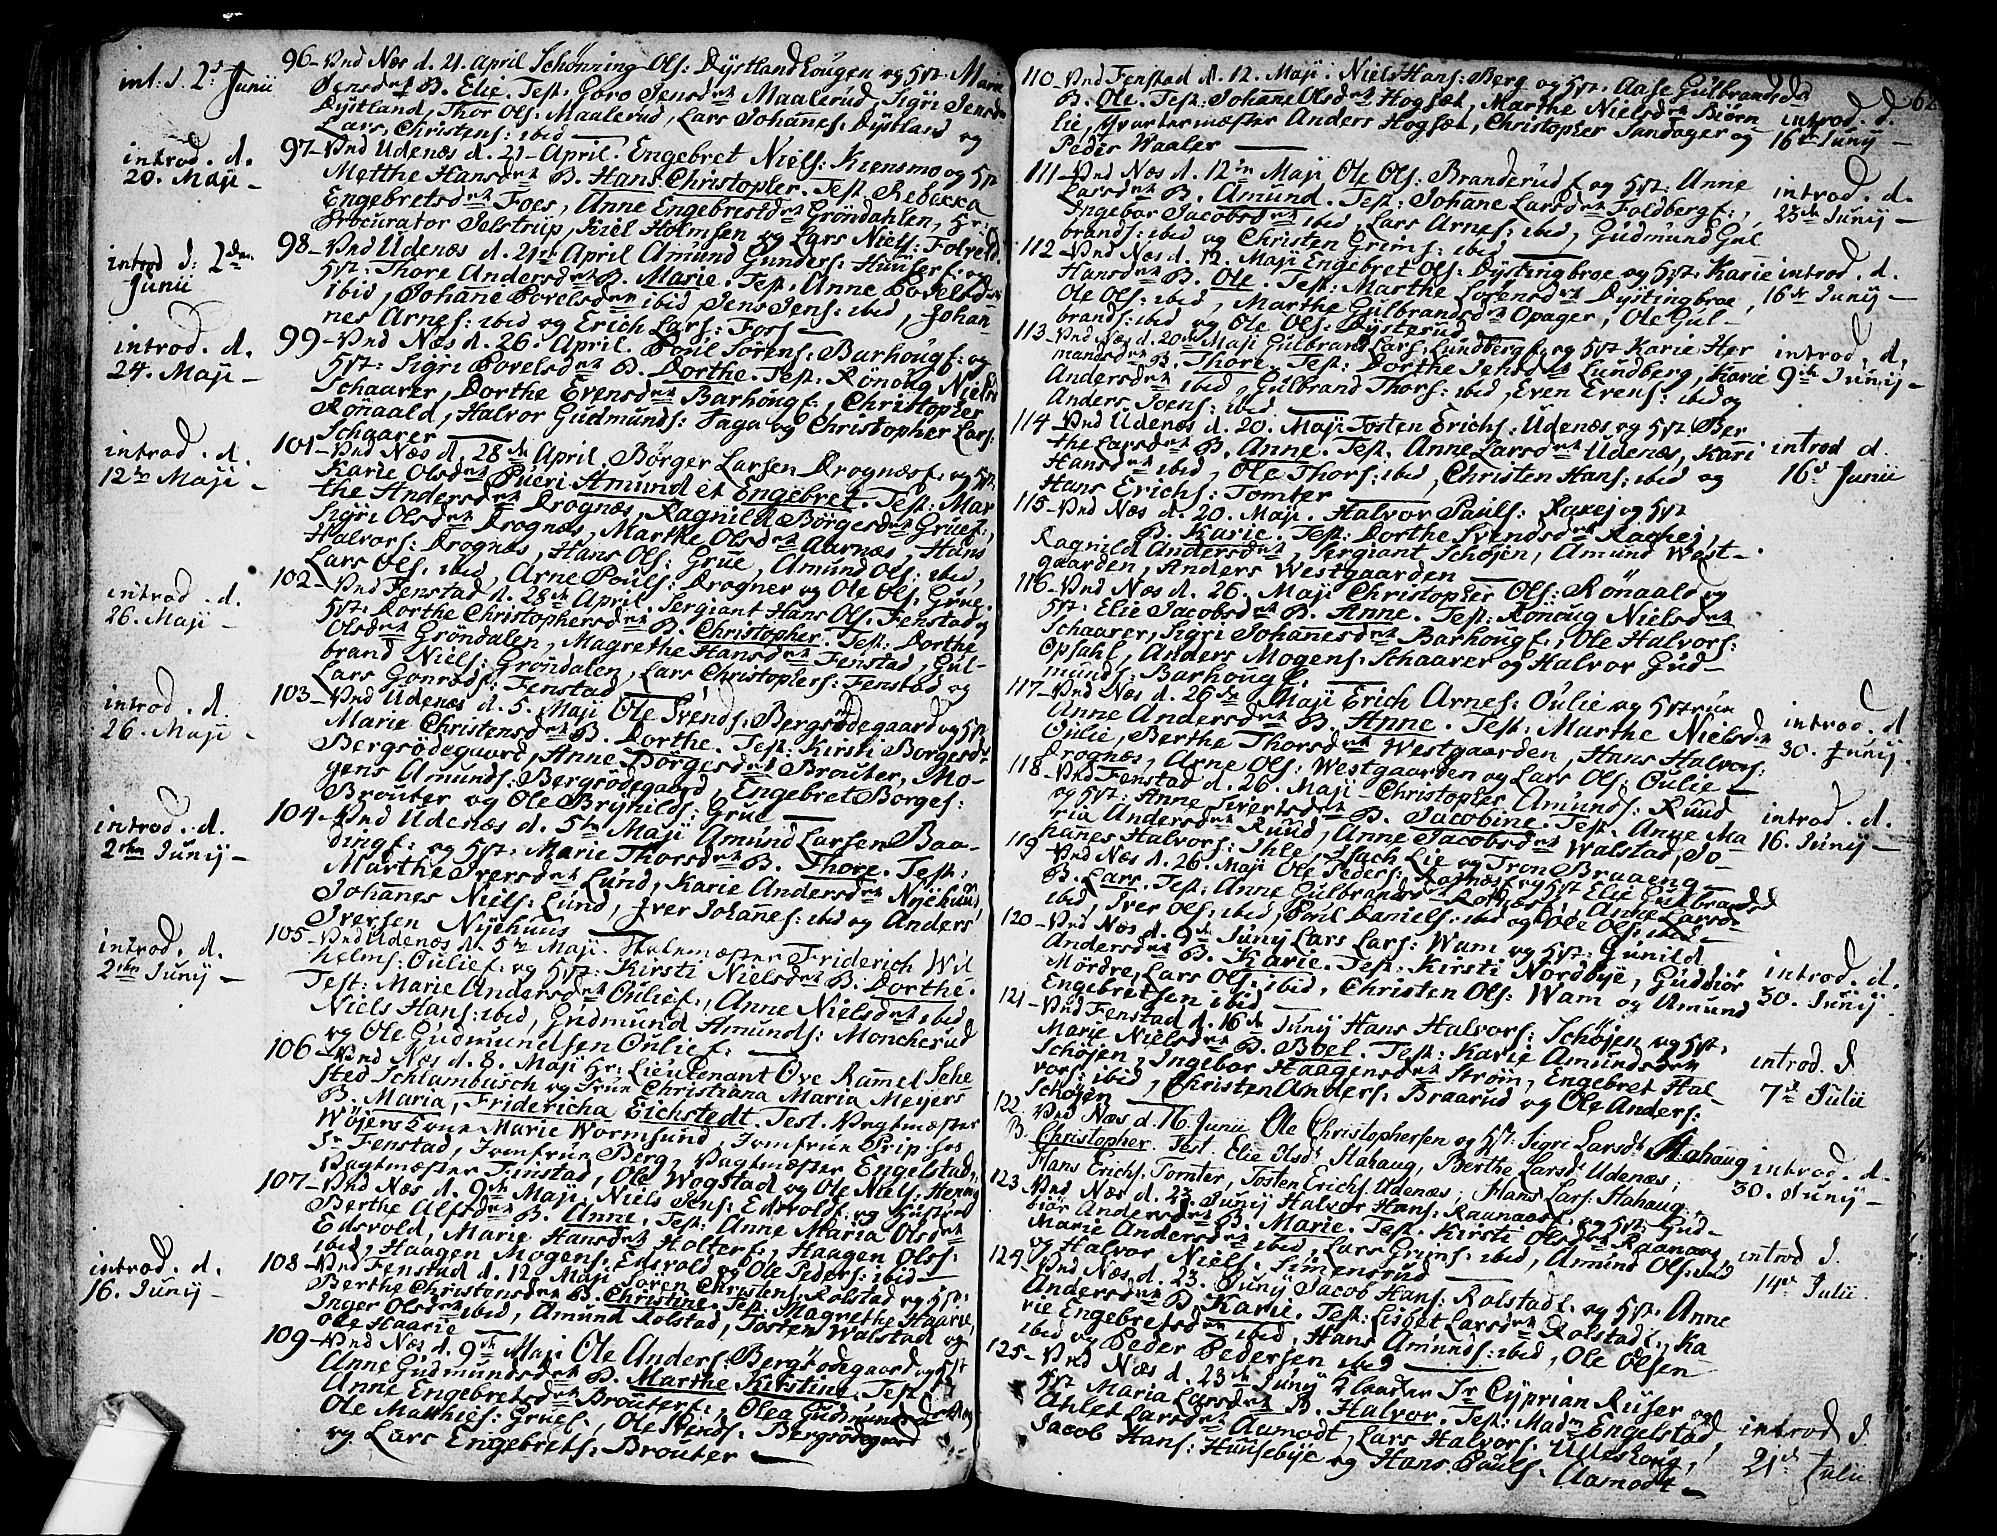 int. d. 2d Junii
96 - Und Næs d. 21. April Schönning Ols: Dystland Lougen og Hst. Maria
Jensdtr B. Elie. Test. Goro Jensdtr Maalerud, Sigri Jensdr
Dystland, Thor Ols: Maalerud, Lars Johannes: Dystland og
Lars Christens: ibid
introd. d.
20. Maji -
97 - Und Udenæs d. 21 - April. Engebret Niels: Kiensmo og Hst
Metthe Hansdtr B. Hans Christopher. Test. Rebecka
Engebretsdtr Foes, Anne Engebretsdtr Gröndahlen, Hr:
Procurator Selstrup, Kiel Holmsen og Lars Niels:
introd d: 2den
Junii
98 - Und Udenæs d. 21de April Amund Gunders: Huuser f. og
Hst: Thore Andersdtr B. Marie. Test. Anne Povelsdtr
ibid, Johane Povelsdtr ibid, Jens Jens: ibid, Johan-
nes Arnes: ibid og Erich Lars: Fors
introd. d.
24. Maji -
99 - Und Næs d. 26. April. Poul Sörens: Barhoug f: og
Hst: Sigri Povelsdtr B. Dorthe. Test. Rönoug Nielsd
Schaarer, Dorthe Evensdtr Barhoug f:, Christopher
Ronaald, Halvor Gudmunds: Faga og Christopher Lars:
Schaarer
introd. d.
12te Maji -
101 - Und Næs d. 28de April. Börger Larsen Drognæs f. og Hst.
Karie Olsdtr Pueri Amund et Engebret. Test: Mar-
the Andersdtr Drognæs, Ragnild Börgesdtr Grue f:,
Sigri Olsdtr Drognæs, Marthe Olsdtr Aarnæs, Hans
Halvors: Drognæs, Hans Ols: Grue, Amund Ols: ibid,
Lars Ols. ibid, Arne Pouls: Drogner og Ole Ols. Grue.
introd. d.
26. Maji -
102 - Und Fenstad d. 28de April. Sergiant Hans Ols. Fenstad og
Hst: Dorthe Christophersdtr B. Christopher. Test: Dorthe
Olsdtr Grondalen, Magrethe Hansdtr Fenstad, Gul-
brand Niels: Gröndalen, Lars Christophers: Fenstad og
Lars Gonrads: Fenstad
introd. d.
26. Maji -
103 - Und Udenæs d. 5. Maji Ole Svends: Bergsödegaard og Hst
Marie Christensdtr B. Dorthe. Test: Kirsti Borgesdr
Bergsödegaard, Anne Borgesdtr Brouter, Mo-
gens Amunds: Bergsödegaard, Engebret Borges:
Brouter og Ole Brynilds: Grue
introd. d.
2den Junij -
104 - Und Udenæs d. 5te Maji Amund Larsen Baa-
ding f: og Hst: Marie Thorsdtr B. Thore. Test:
Marthe Iversdtr Lund, Karie Andersdtr Nÿehuus,
Johannes Niels: Lund, Iver Johannes: ibid og Anders
Iversen Nÿehuus
introd. d.
2den Junij -
105 - Und Udenæs d. 5te Maji. Friderich Wil
helms: Oulie f. og Hst: Kirsti Nielsdtr B. Dorthe.
Test: Marie Andersdtr Oulie f:, Anne Nielsdtr ibid
Niels Hans: ibid, Gudmund Amunds: Moncherud
og Ole Gudmundsen Oulie f.
106 - Und Næs d. 8. Maji Hr: Lieutenant Ove Ramel Sehe
sted Schlambusch og Frue Christiana Maria Meyers
B. Maria, Fridericha Eichstedt. Test. Vagtmester
Wöjens Frue Marie Wormsund, Jomfrue Prip hos
Sr Fenstad, Jomfrue Berg, Vagtmæster Engelstad,
Vagtmæster Finstad, Ole Wogstad og Ole Niels: Henni
107 - Und Næs d. 9de Maji. Niels Jens: Edsvold f: og Hustru
Berthe Alfsdtr B. Anne. Test: Anne Maria Olsdtr
Edsvold, Marie Hansdtr Holter f:, Haagen Ols:
ibid, Haagen Mogens: Edsvold og Ole Peders: ibid
introd. d.
16. Junij -
108 - Und Fenstad d. 12. Maji Sören Christens: Rolstad og Hst.
Berthe Christensdtr B. Christine. Test: Magrethe Haarie,
Inger Olsdtr ibid, Amund Rolstad, Tosten Walstad og
Ole Haarie
109 - Und Næs d. 9de Maji Ole Anders: Bergsödegaard og Hst
Anne Gudmundsdtr B. Marthe Kirstine. Test.
Anne Engebretsdtr Brouter f:, Olea Gudmundsdtr
Ole Matthies: Grue f., Ole Svends: Bergsödegaard
og Lars Engebrets: Brouter
62
110 - Und Fenstad d. 12. Maji. Niels Hans: Berg og Hst. Aase Gulbrandsdr
B. Ole. Test: Johane Olsdtr Hogset, Marthe Nielsdtr Biörn
lie, Qvartermæster Anders Hogset, Christopher Sandager og
Peder Waaler
introd. d.
16de Junij -
111 - Und Næs d. 12te Maji Ole Ols: Branderud f. og Hst: Anne
Larsdtr B. Amund. Test: Johane Larsdtr Foldberg f.,
Ingebor Jacobsdtr ibid, Lars Arnes: ibid, Gudmund Gul
brands: ibid og Christen Grims: ibid
introd. d.
23de Junij -
112 - Und Næs d. 12. Maji Engebret Ols: Dystingbroe og Hst: Karie
Hansdtr B. Ole. Test: Marthe Lorensdtr Dystingbroe,
Ole Ols: ibid, Marthe Gulbrandsdtr Opager, Ole Gul-
brands: ibid og Ole Ols: Dysterud
introd. d.
16de Junij -
113 - Und Næs d. 20de Maji Gulbrand Lars: Lundberg f. og Hst Karie Her
mansdtr B. Thore. Test: Dorthe Jensdtr Lundberg, Karie
Andersdtr ibid, Gulbrand Thors: ibid, Even Evens: ibid og
Anders Joens: ibid
introd. d.
9de Junij -
114 - Und Udenæs d. 20. Maji Tosten Erichs: Udenæs og Hst. Ber
the Larsdtr B. Anne. Test. Anne Larsdtr Udenæs, Kari
Hansdtr ibid, Ole Thors: ibid, Christen Hans: ibid og
Hans Erichs: Tomter
introd d.
16d Junii
115 - Und Næs d. 20. Maji. Halvor Pauls: Raxej og Hst
B. Karie. Test: Dorthe Svendsdtr Raghej,
Ragnild Andersdtr, Sergiant Schöjen, Amund West-
gaarden, Anders Westgaarden
116 - Und Næs d. 26. Maji Christopher Ols: Rönaald og
Hst: Elie Jacobsdtr B. Anne. Test: Rönoug Nielsdtr
Schaarer, Sigri Johanesdtr Barhoug f:, Ole Halvors:
Opsahl, Anders Mogens: Schaarer og Halvor Gud-
munds: Barhoug f.
117 - Und Næs d. 26de Maji Erich Arnes: Oulie og Hstrue
Anne Andersdtr B. Anne. Test: Marthe Nielsdtr
Oulie, Berthe Thorsdtr Westgaarden, Hans Halvors:
Drognæs, Arne Ols: Westgaarden og Lars Ols: Oulie
introd. d
30. Junij.
118 - Und Fenstad d. 26. Maji Christopher Amunds: Ruud
og Hst: Anne Sivertsdtr B. Jacobine. Test. Anne Ma
ria Andersdtr Ruud, Anne Jacobsdtr Walstad, Jo-
hanes Halvors: Ihle, Isach Lie og Tron Braaeng
introd. d.
16. Junij -
119 - Und Næs d. 26. Maji Ole Peders: Rotnæs og Hst Elie Gulbrandsd
B. Lars. Test: Anne Gulbrandsdr Rotnæs, Anne Larsdr
ibid, Iver Ols: ibid, Poul Daniels: ibid og Ole Ols: ibid
120 - Und Næs d. 9de Junij Lars Lars: Wam og Hst: Gunild
Andersdtr B. Karie. Test: Kirsti Nordbye, Gudbiör
Mördre, Lars Ols: ibid, Christen Ols: Wam og Amund
Engebretsen ibid
introd. d.
30. Junij.
121 - Und Fenstad d. 16de Junij Hans Halvors: Schöjen og Hst.
Marie Nielsdtr B. Boel. Test: Karie Amundsdtr
Schöjen, Ingebor Haagensdtr Ströin, Engebret Hal-
vors: ibid, Christen Anders: Braarud og Ole Anders:
Schöjen
introd. d
7de Julii
122. Und Næs d. 16. Junii Ole Christophersen og Hst: Sigri Larsdr Stahaug
B. Christopher. Test. Elie Olsdr Stahaug, Berthe Larsdr Udenæs,
Hans Erichs. Tomter, Tosten Erichs. Udenæs, Hans Lars: Stahaug
introd. d.
30. Junij -
123. Und Næs d. 23. Junij Halvor Hans: Raanaas f. og Hst Gud-
biör Andersdtr B. Marie. Test. Kirsti Olsdtr Raanaas
Marie Andersdtr ibid, Lars Grims: ibid, Amund Ols: ibid
og Halvor Niels: Simensrud
introd d.
14de Julii.
124. Und Næs d. 23. Junij Jacob Hans: Rolstad f. og Hst. Anne
Andersdtr B. Karie. Test: Lisbet Larsdtr Rolstad f., Ka-
rie Engebretsdtr ibid, Hans Amunds: ibid, Ole Olsen
ibid og Peder Pedersen ibid
125 - Und Næs d. 23de Junij Klocker Sr Cyprian Ruser og
Hst Maria Larsdtr B. Halvor. Test: Madm Engelstad,
Anlet Larsdtr Aamodt, Lars Halvors: Ulleshoug,
Jacob Hans: Huusebije og Hans Pauls. Aamodt -
introd d
21de Julii